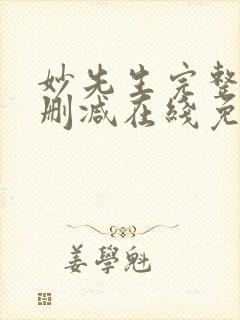 妙先生完整
删减在线免
姜學魁